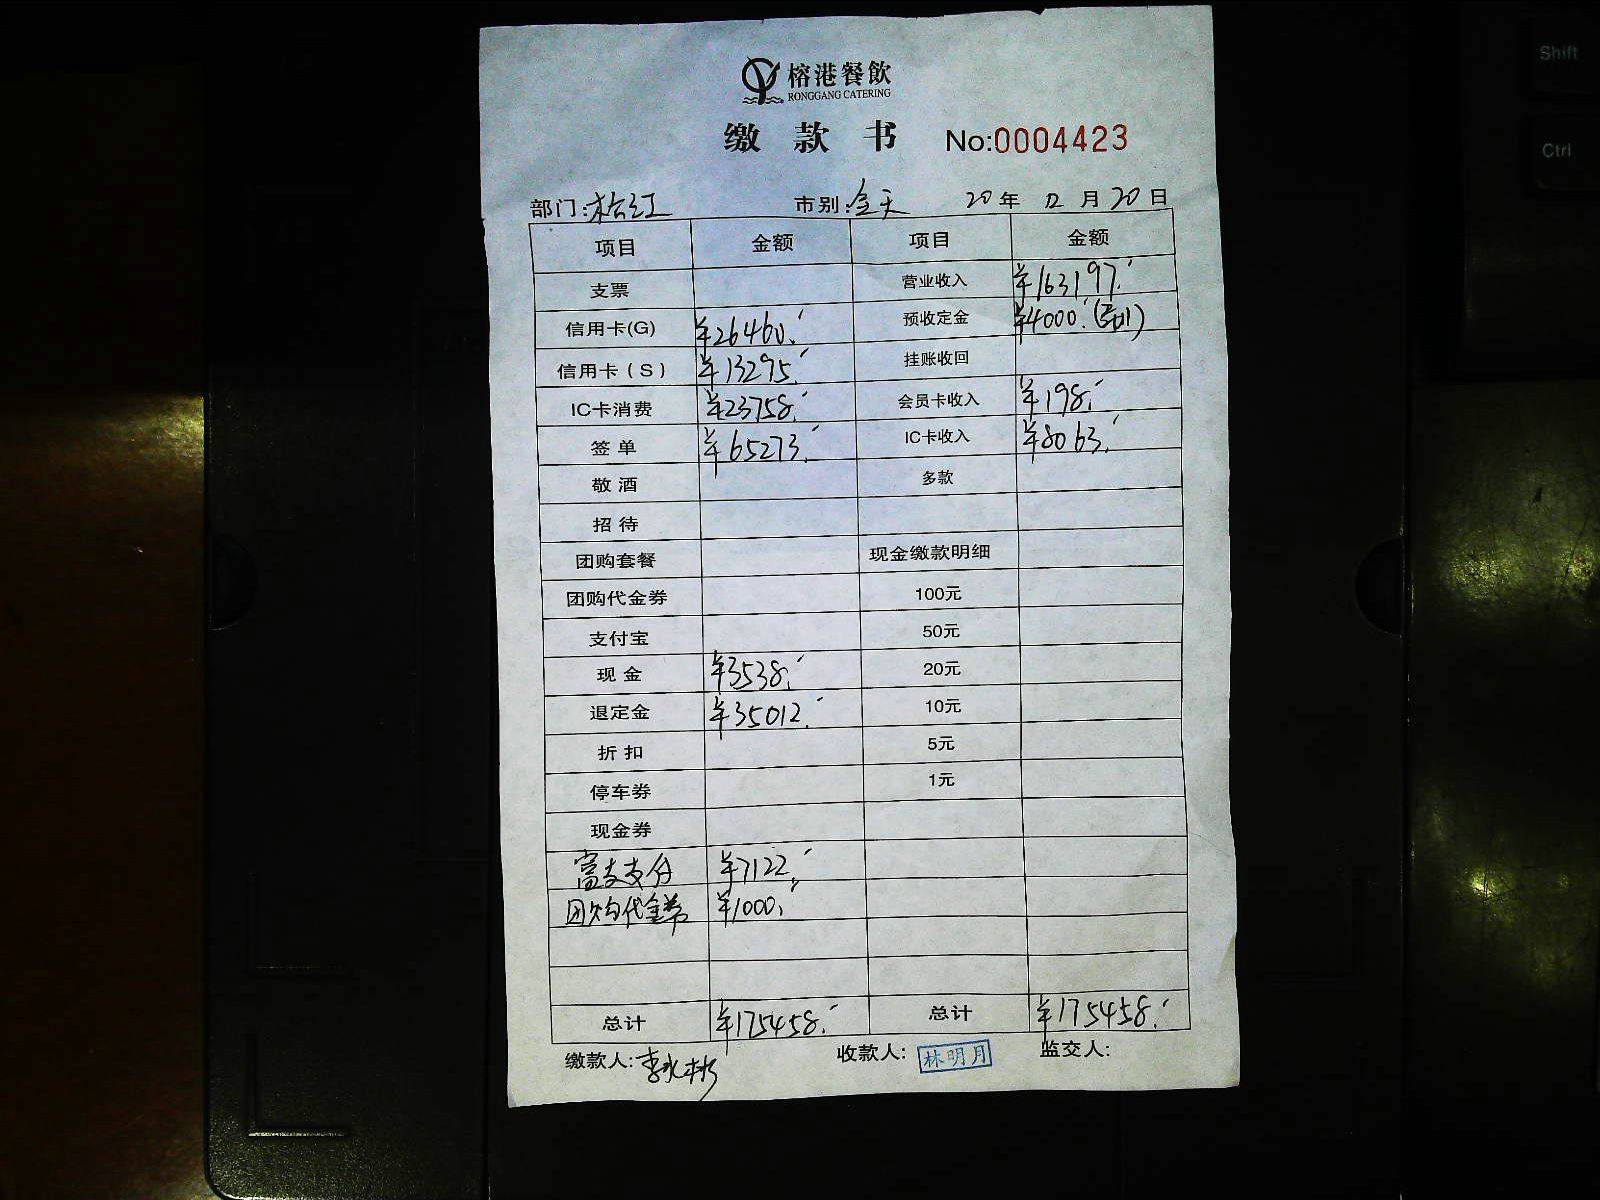 榕港餐飲
RONGGANG CATERING
缴款书 No:0004423
部门: 市别:全天 20年 12月20日
项目 金额 项目 金额
支票 营业收入 ¥163197.
信用卡(G) ¥26460. 预收定金 ¥4000.
信用卡(S) ¥13295. 挂账收回
IC卡消费 ¥23758. 会员卡收入 ¥198.
签单 ¥65273. IC卡收入 ¥8063.
敬酒 多款
招待
团购套餐 现金缴款明细
团购代金券 100元
支付宝 50元
现金 ¥3538. 20元
退定金 ¥35012. 10元
折扣 5元
停车券 1元
现金券
富友支付 ¥7122.
团购代金券 ¥1000.
总计 ¥175458. 总计 ¥175458.
缴款人:李永彬 收款人:林明月 监交人:
Shift
Ctrl